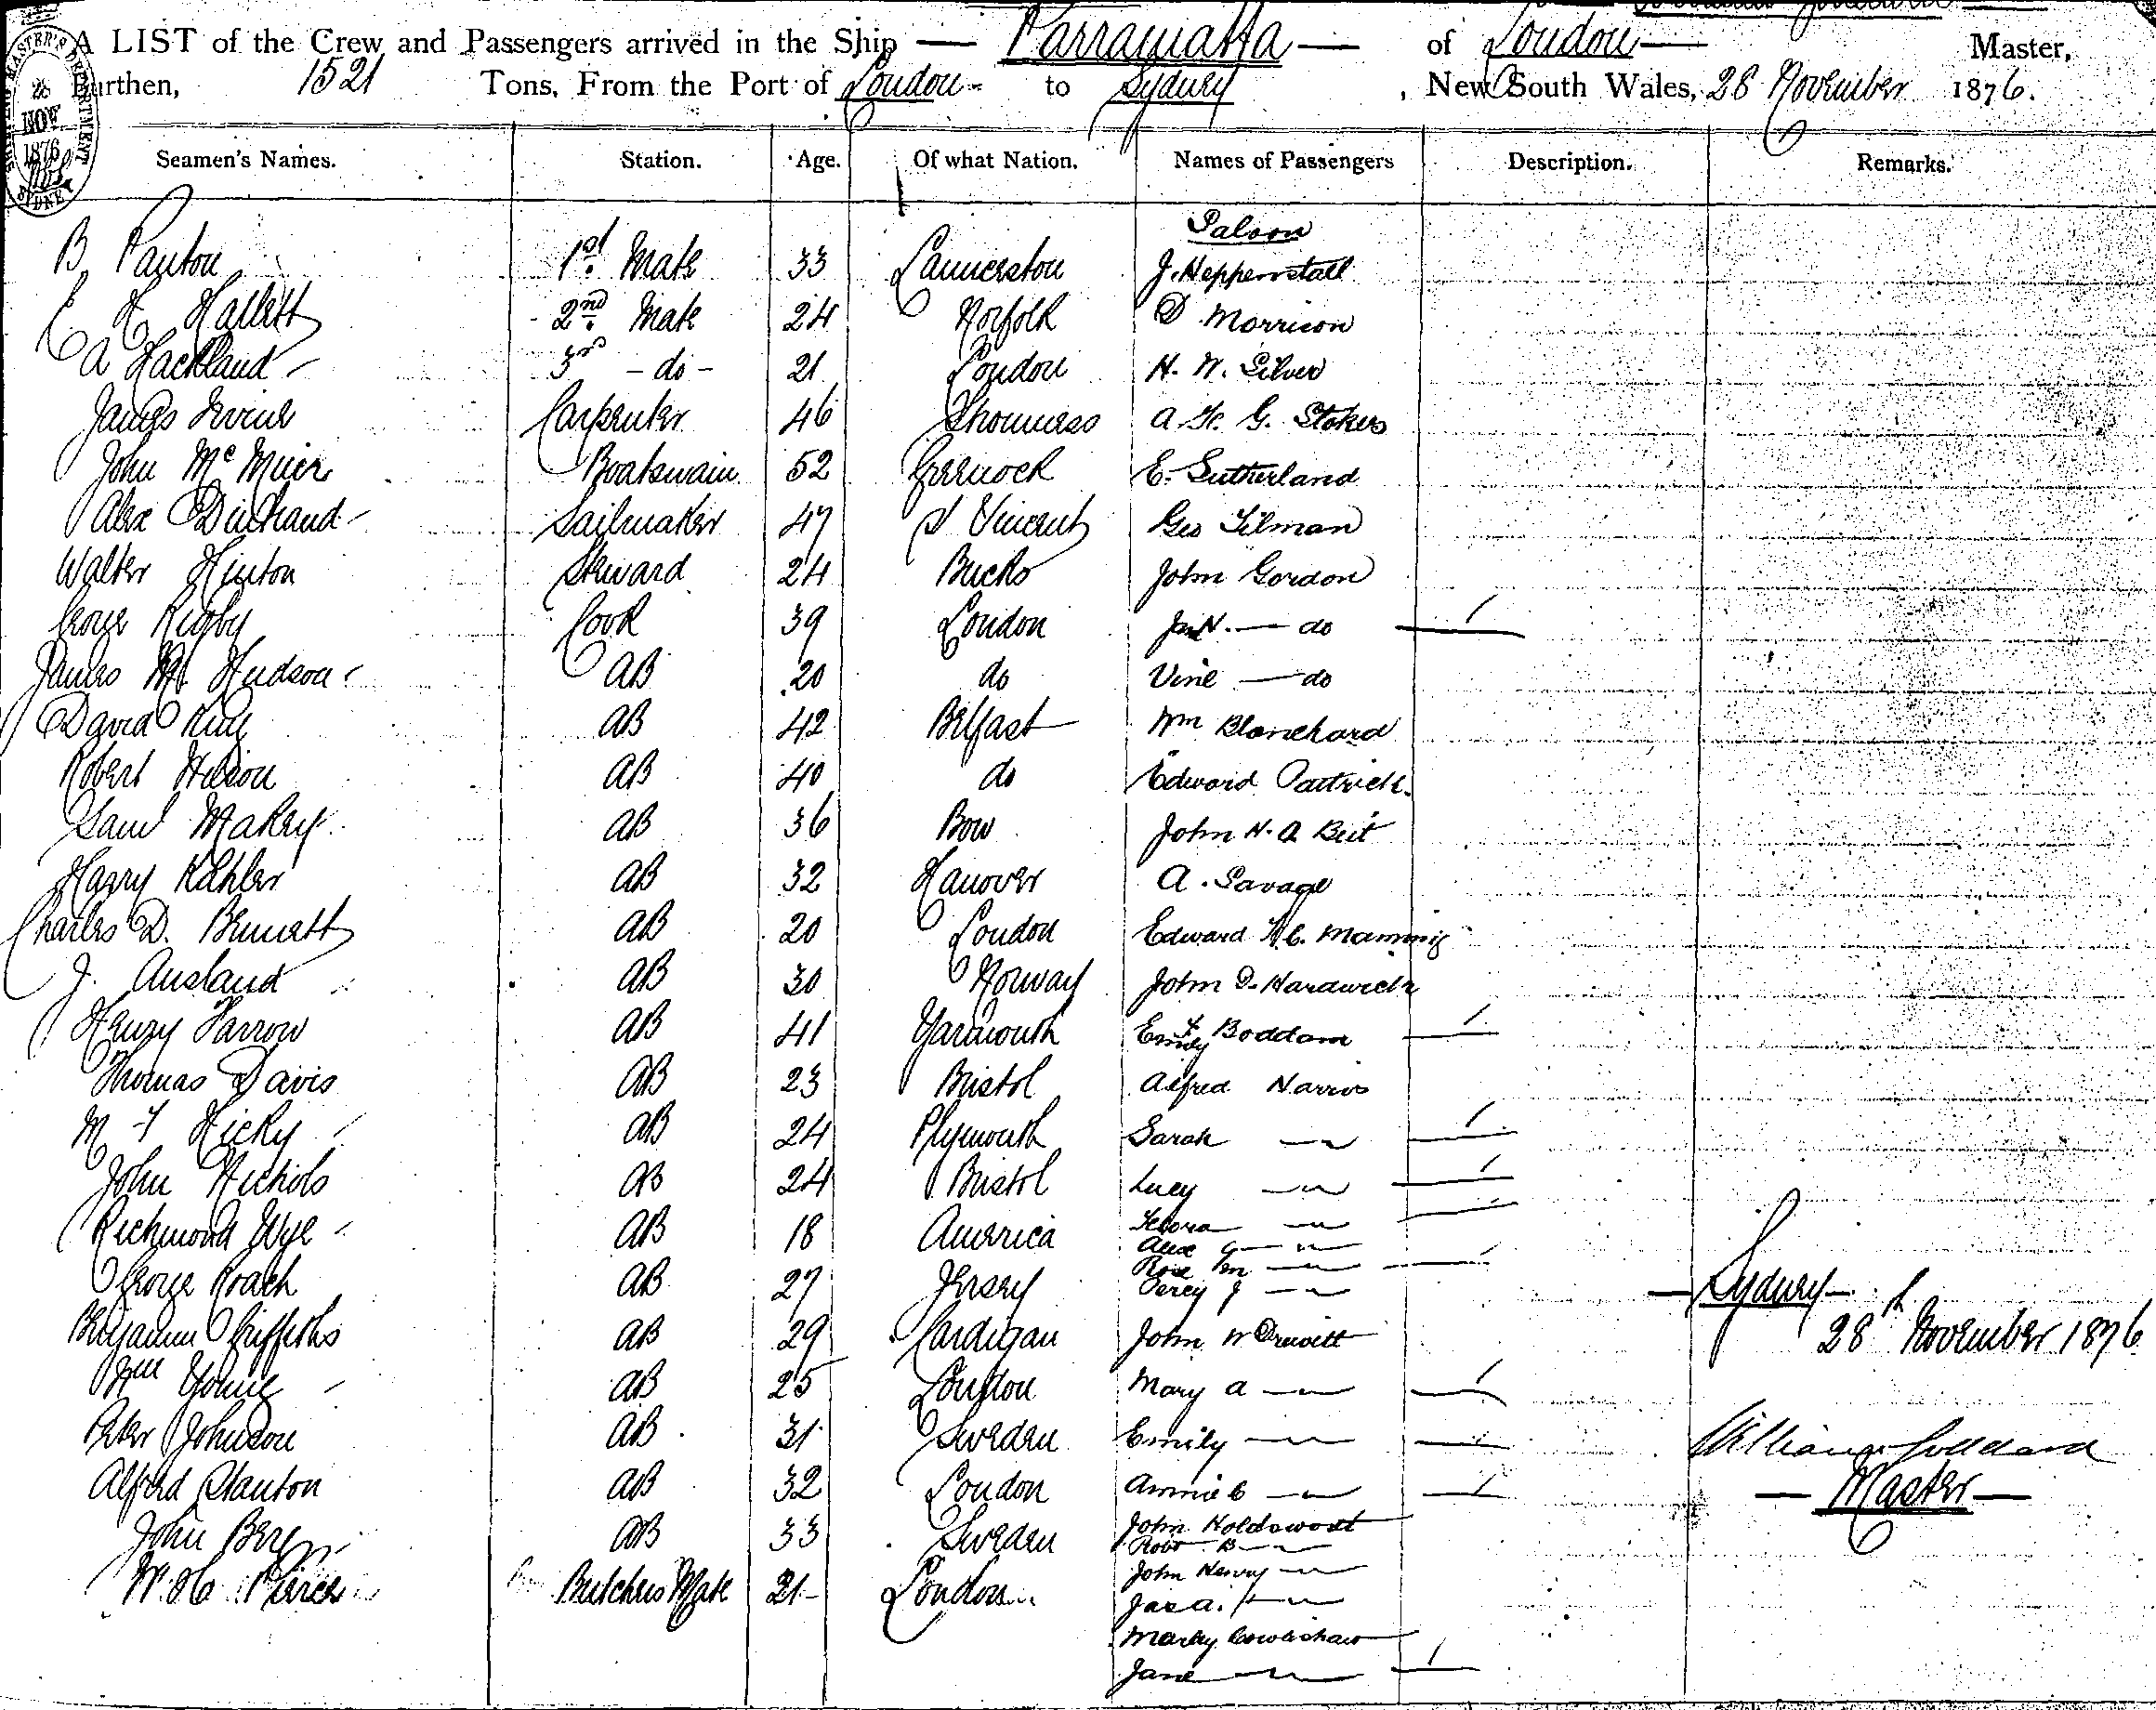 A LIST of the Crew and Passengers arrived in the Ship — Parramatta — of London — Master,
Burthen, 1521 Tons, From the Port of London - to Sydney, New South Wales, 28 November 1876.
NOV 1876
Seamen's Names. Station. Age. Of what Nation. Names of Passengers Description. Remarks.
Saloon
B Panton 1st. Mate 33 Launceston J. Heppenstall
E H Hallett 2nd. Mate 24 Norfolk D Morrison
A Hackland 3rd - do - 21 London H. W. Silver
James Irvine Carpenter 46 A. G. Stokes
John McMuir Boatswain 52 Greenock E. Sutherland
Alex Sailmaker 47 St Vincent Geo Tilman
Walter Hinton Steward 24 Bucks John Gordon
George Rigby Cook 39 London — do
James Hudson AB 20 do Vine — do
David King AB 42 Belfast Wm Blanchard
Robert AB 40 do Edward
Saml Makey AB 36 Bow John H. A Beit
Harry Kahler AB 32 Hanover A. Savage
Charles D. Bennett AB 20 London Edward Manning
J. Ausland AB 30 Norway John D. Hardwick
Henry Farrow AB 41 Yarmouth Emily Boddam
Thomas Davis AB 23 Bristol Alfred
M Hicky AB 24 Plymouth Sarah —
John Nichols AB 24 Bristol Lucy —
Richmond Wye AB 18 America —
Alex G —
Rose M —
George Roach AB 27 Jersey Percy J —
Benjamin Griffiths AB 29 Cardigan John W Drewitt
Wm Young AB 25 London Mary A —
Peter Johnson AB 31 Sweden Emily —
Alfred Stanton AB 32 London Annie C —
John Berg AB 33 Sweden John Holdsworth
Robt B —
John Henry —
W. H. Pierce Butchers Mate 21 London Jas A. —
Cowlishaw
Jane —
Sydney
28th November 1876
William Goddard
— Master —